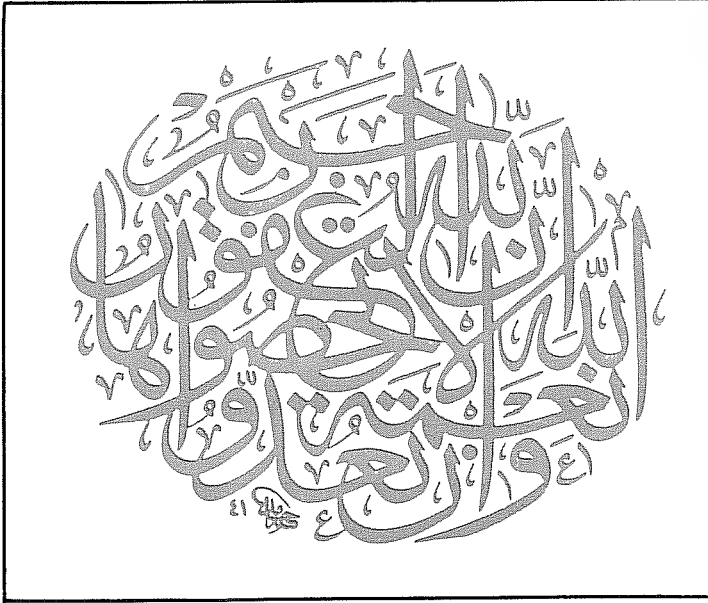 وان تعدوا نعمة الله لا تحصوها ان الله لغفور رحيم
٤١